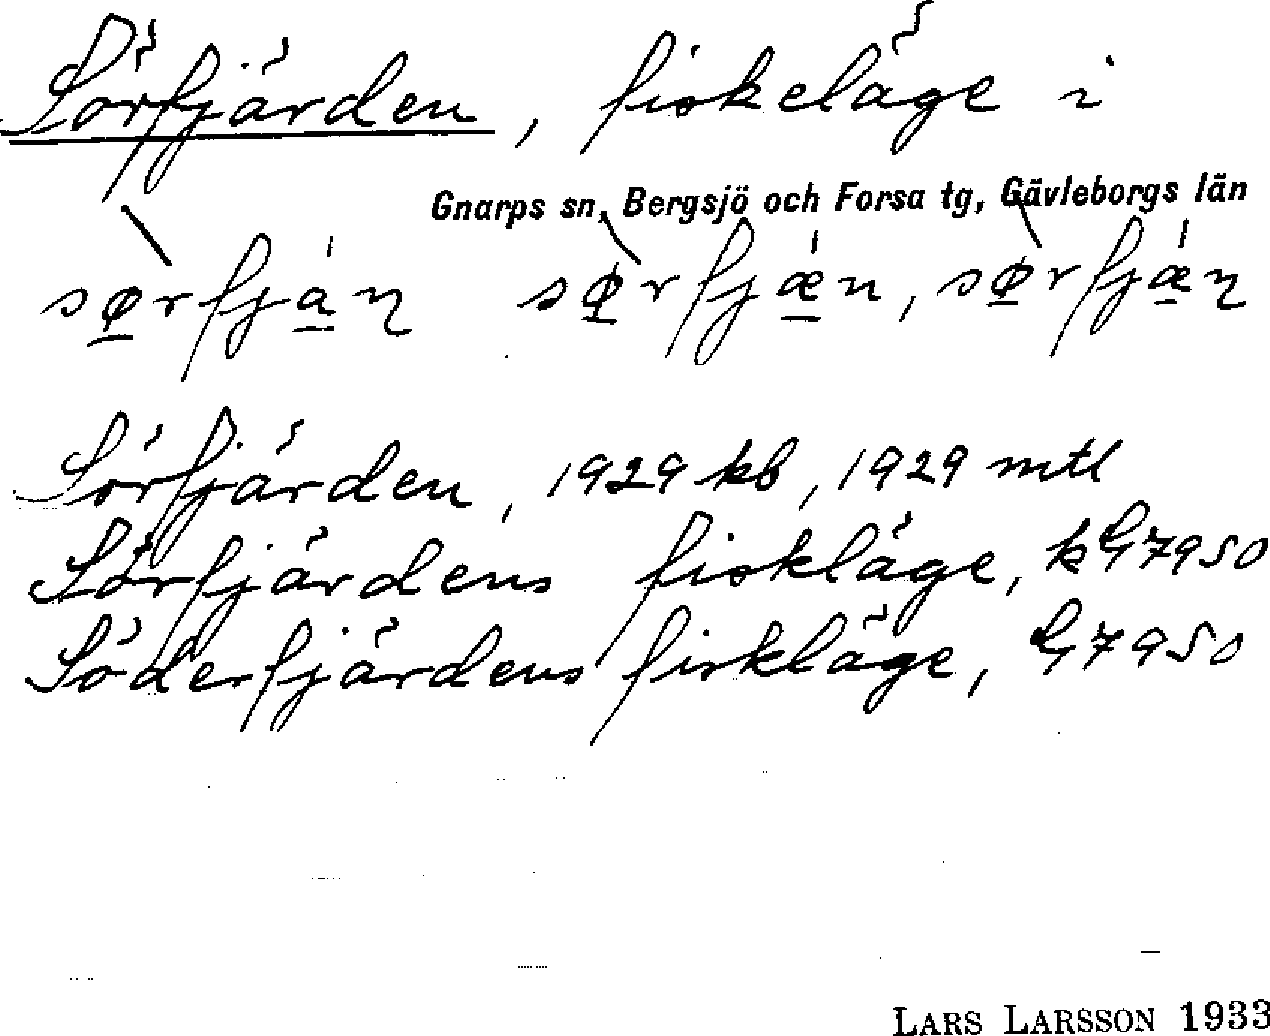 Sörfjärden, fiskeläge i
Gnarps sn, Bergsjö och Forsa tg, Gävleborgs län
sørfjan sørfjæn, sørfjæŋ
Sörfjärden, 1929 kb, 1929 mtl
Sörfjärdens fiskläge, kG7950
Söderfjärdens fiskläge, G7950
LARS LARSSON 1933